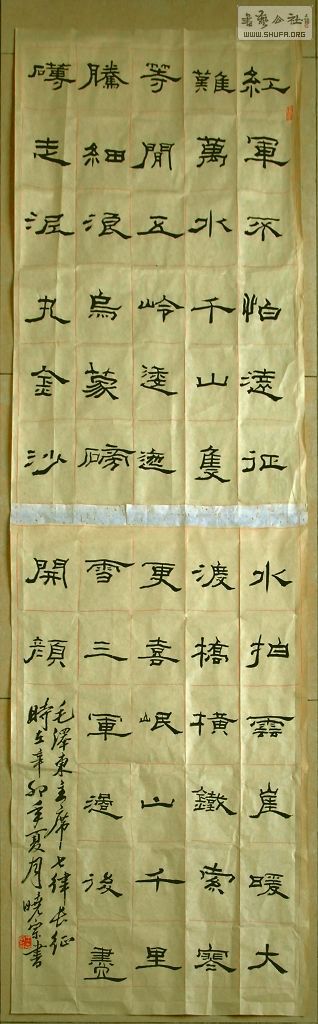 紅軍不怕遠征
難萬水千山隻
等閒五岭逶迤
騰細浪烏蒙磅
礡走泥丸金沙
水拍雲崖暖大
渡橋橫鐵索寒
更喜岷山千里
雪三軍過後盡
開顏
毛澤東主席七律長征
時在辛卯年夏月曉宗書
書藝公社
WWW.SHUFA.ORG